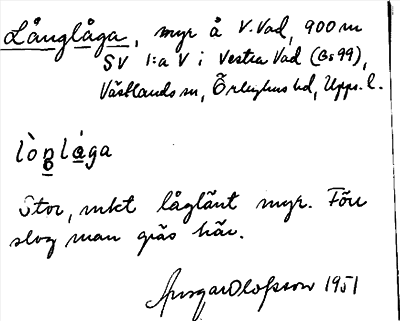 Långlåga, myr å V. Vad, 900 m
SV l:a V i Vestra Vad (Gs 99),
Västlands sn, Örbyhus hd, Upps. l.
lòŋlåga
Stor, mkt låglänt myr. Förr
slog man gräs här.
Ansgar Olofsson 1951